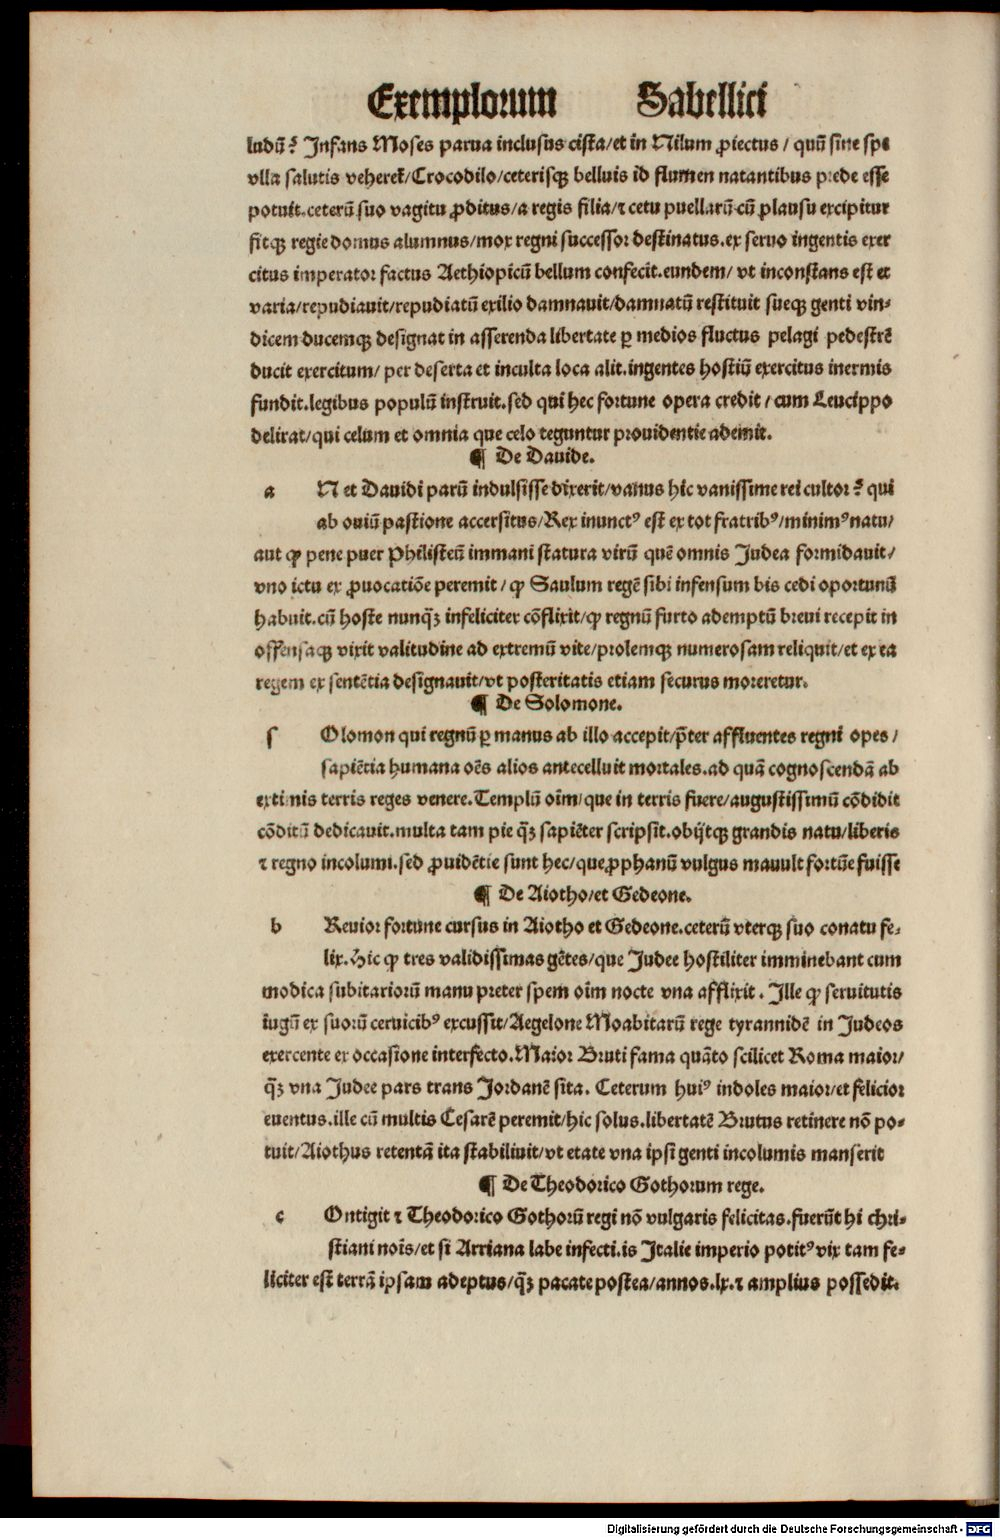 Exemplorum Sabellici
ludũ? Infans Moses parua inclusus cista/et in Nilum ꝓiectus/ quũ sine spe
vlla salutis veheret̃/Crocodilo/ceterisqꝫ belluis id flumen natantibus prede esse
potuit.ceterũ suo vagitu ꝓditus/a regis filia/⁊ cetu puellarũ cũ plausu excipitur
fitqꝫ regie domus alumnus/mox regni successor destinatus.ex seruo ingentis exer
citus imperator factus Aethiopicũ bellum confecit.eundem/ vt inconstans est et
varia/repudiauit/repudiatũ exilio damnauit/damnatũ restituit sueqꝫ genti vin-
dicem ducemqꝫ designat in asserenda libertate ꝑ medios fluctus pelagi pedestrẽ
ducit exercitum/ per deserta et inculta loca alit.ingentes hostiũ exercitus inermis
fundit.legibus populũ instruit.sed qui hec fortune opera credit/cum Leucippo
delirat/qui celum et omnia que celo teguntur prouidentie ademit.
¶ De Dauide.
a N et Dauidi parũ indulsisse dixerit/vanus hic vanissime rei cultor? qui
ab ouiũ pastione accersitus/Rex inunctꝰ est ex tot fratribꝰ/minimꝰ natu/
aut ꝙ pene puer Philisteũ immani statura virũ quẽ omnis Judea formidauit/
vno ictu ex ꝓuocatiõe peremit/ꝙ Saulum regẽ sibi infensum bis cedi oportunũ
habuit.cũ hoste nunq̃ꝫ infeliciter cõflixit/ꝙ regnũ furto ademptũ breui recepit in
offensaqꝫ vixit valitudine ad extremũ vite/prolemqꝫ numerosam reliquit/et ex ea
regem ex sentẽtia designauit/vt posteritatis etiam securus moreretur.
¶ De Solomone.
s Olomon qui regnũ ꝑ manus ab illo accepit/p̃ter affluentes regni opes/
sapiẽtia humana oẽs alios antecelluit mortales.ad quã cognoscendã ab
extimis terris reges venere.Templũ oĩm/que in terris fuere/augustissimũ cõdidit
cõditũ dedicauit.multa tam pie q̃ꝫ sapiẽter scripsit.obijtqꝫ grandis natu/liberis
⁊ regno incolumi.sed ꝓuidẽtie sunt hec/que ꝓphanũ vulgus mauult fortũe fuisse
¶ De Aiotho/et Gedeone.
b Reuior fortune cursus in Aiotho et Gedeone.ceterũ vterqꝫ suo conatu fe-
lix.Hic ꝙ tres validissimas gẽtes/que Judee hostiliter imminebant cum
modica subitariorũ manu preter spem oĩm nocte vna afflixit. Ille ꝙ seruitutis
iugũ ex suorũ ceruicibꝰ excussit/Aegelone Moabitarũ rege tyrannidẽ in Judeos
exercente ex occasione interfecto.Maior Bruti fama quãto scilicet Roma maior/
q̃ꝫ vna Judee pars trans Jordanẽ sita. Ceterum huiꝰ indoles maior/et felicior
euentus.ille cũ multis Cesarẽ peremit/hic solus.libertatẽ Brutus retinere nõ po-
tuit/Aiothus retentã ita stabiliuit/vt etate vna ipsi genti incolumis manserit
¶ De Theodorico Gothorum rege.
c Ontigit ⁊ Theodorico Gothorũ regi nõ vulgaris felicitas.fuerũt hi chri-
stiani noĩs/et si Arriana labe infecti.is Italie imperio potitꝰ vix tam fe-
liciter est terrã ipsam adeptus/q̃ꝫ pacate postea/annos.lx.⁊ amplius possedit.
Digitalisierung gefördert durch die Deutsche Forschungsgemeinschaft - DFG